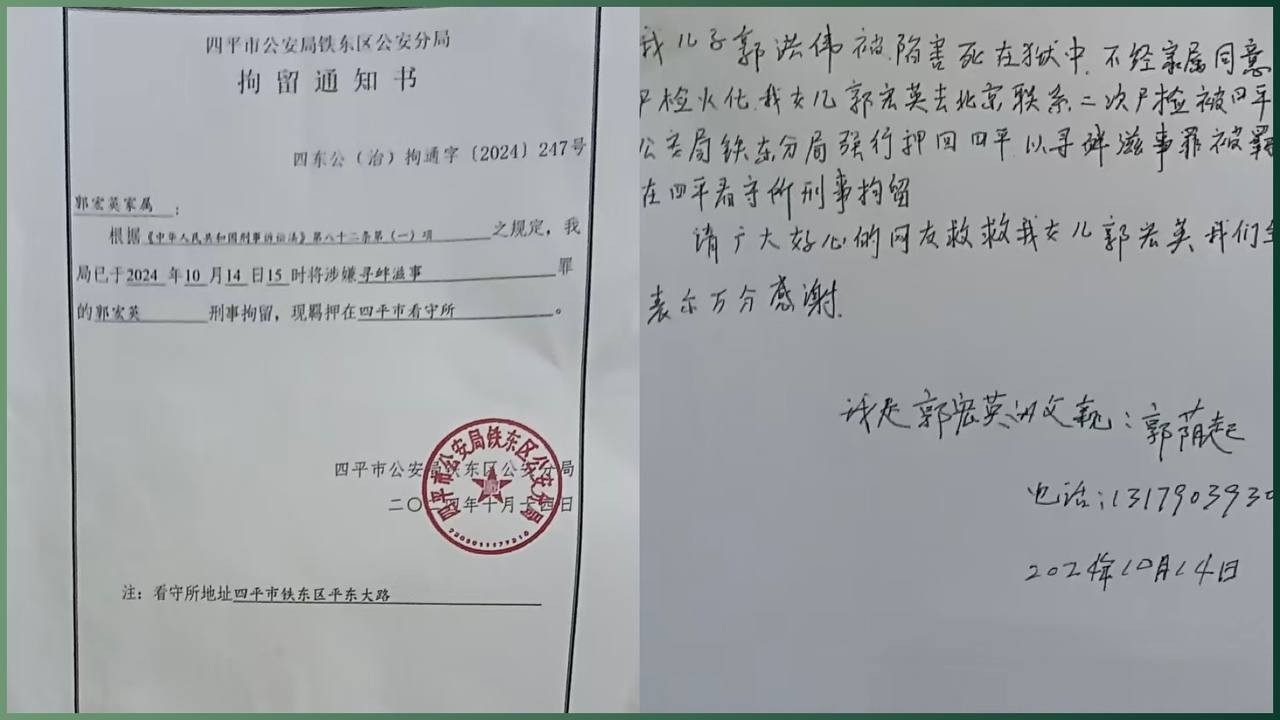 四平市公安局铁东区公安分局
拘留通知书
四东公（治）拘通字〔2024〕247号
郭宏英家属：
根据《中华人民共和国刑事诉讼法》第八十二条第（一）项之规定，我
局已于2024年10月14日15时将涉嫌寻衅滋事罪
的郭宏英刑事拘留，现羁押在四平市看守所。
四平市公安局铁东区公安分局
二〇二四年十月十四日
四平市公安局铁东区公安分局
注：看守所地址四平市铁东区平东大路
我儿子郭洪伟被陷害死在狱中，不经家属同意
尸检火化，我女儿郭宏英去北京联系二次尸检被四平
公安局铁东分局强行押回四平，以寻衅滋事罪被羁
在四平看守所刑事拘留
请广大好心的网友救救我女儿郭宏英，我们全
表示万分感谢.
我是郭宏英的父亲：郭荫起
电话：1317903930
2024年10月14日